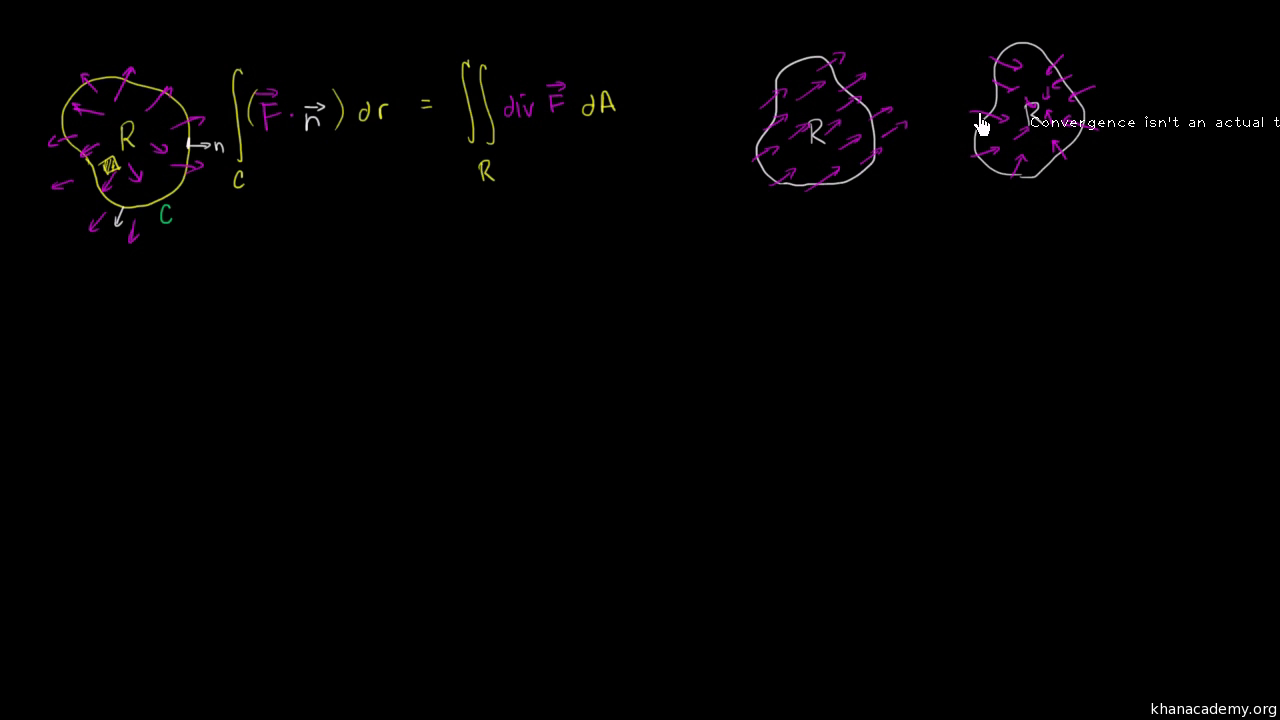 R
n
C
∫ (F⃗ · n⃗) dr = ∬ div F⃗ dA
C
R
R
R
Convergence isn't an actual t
khanacademy.org